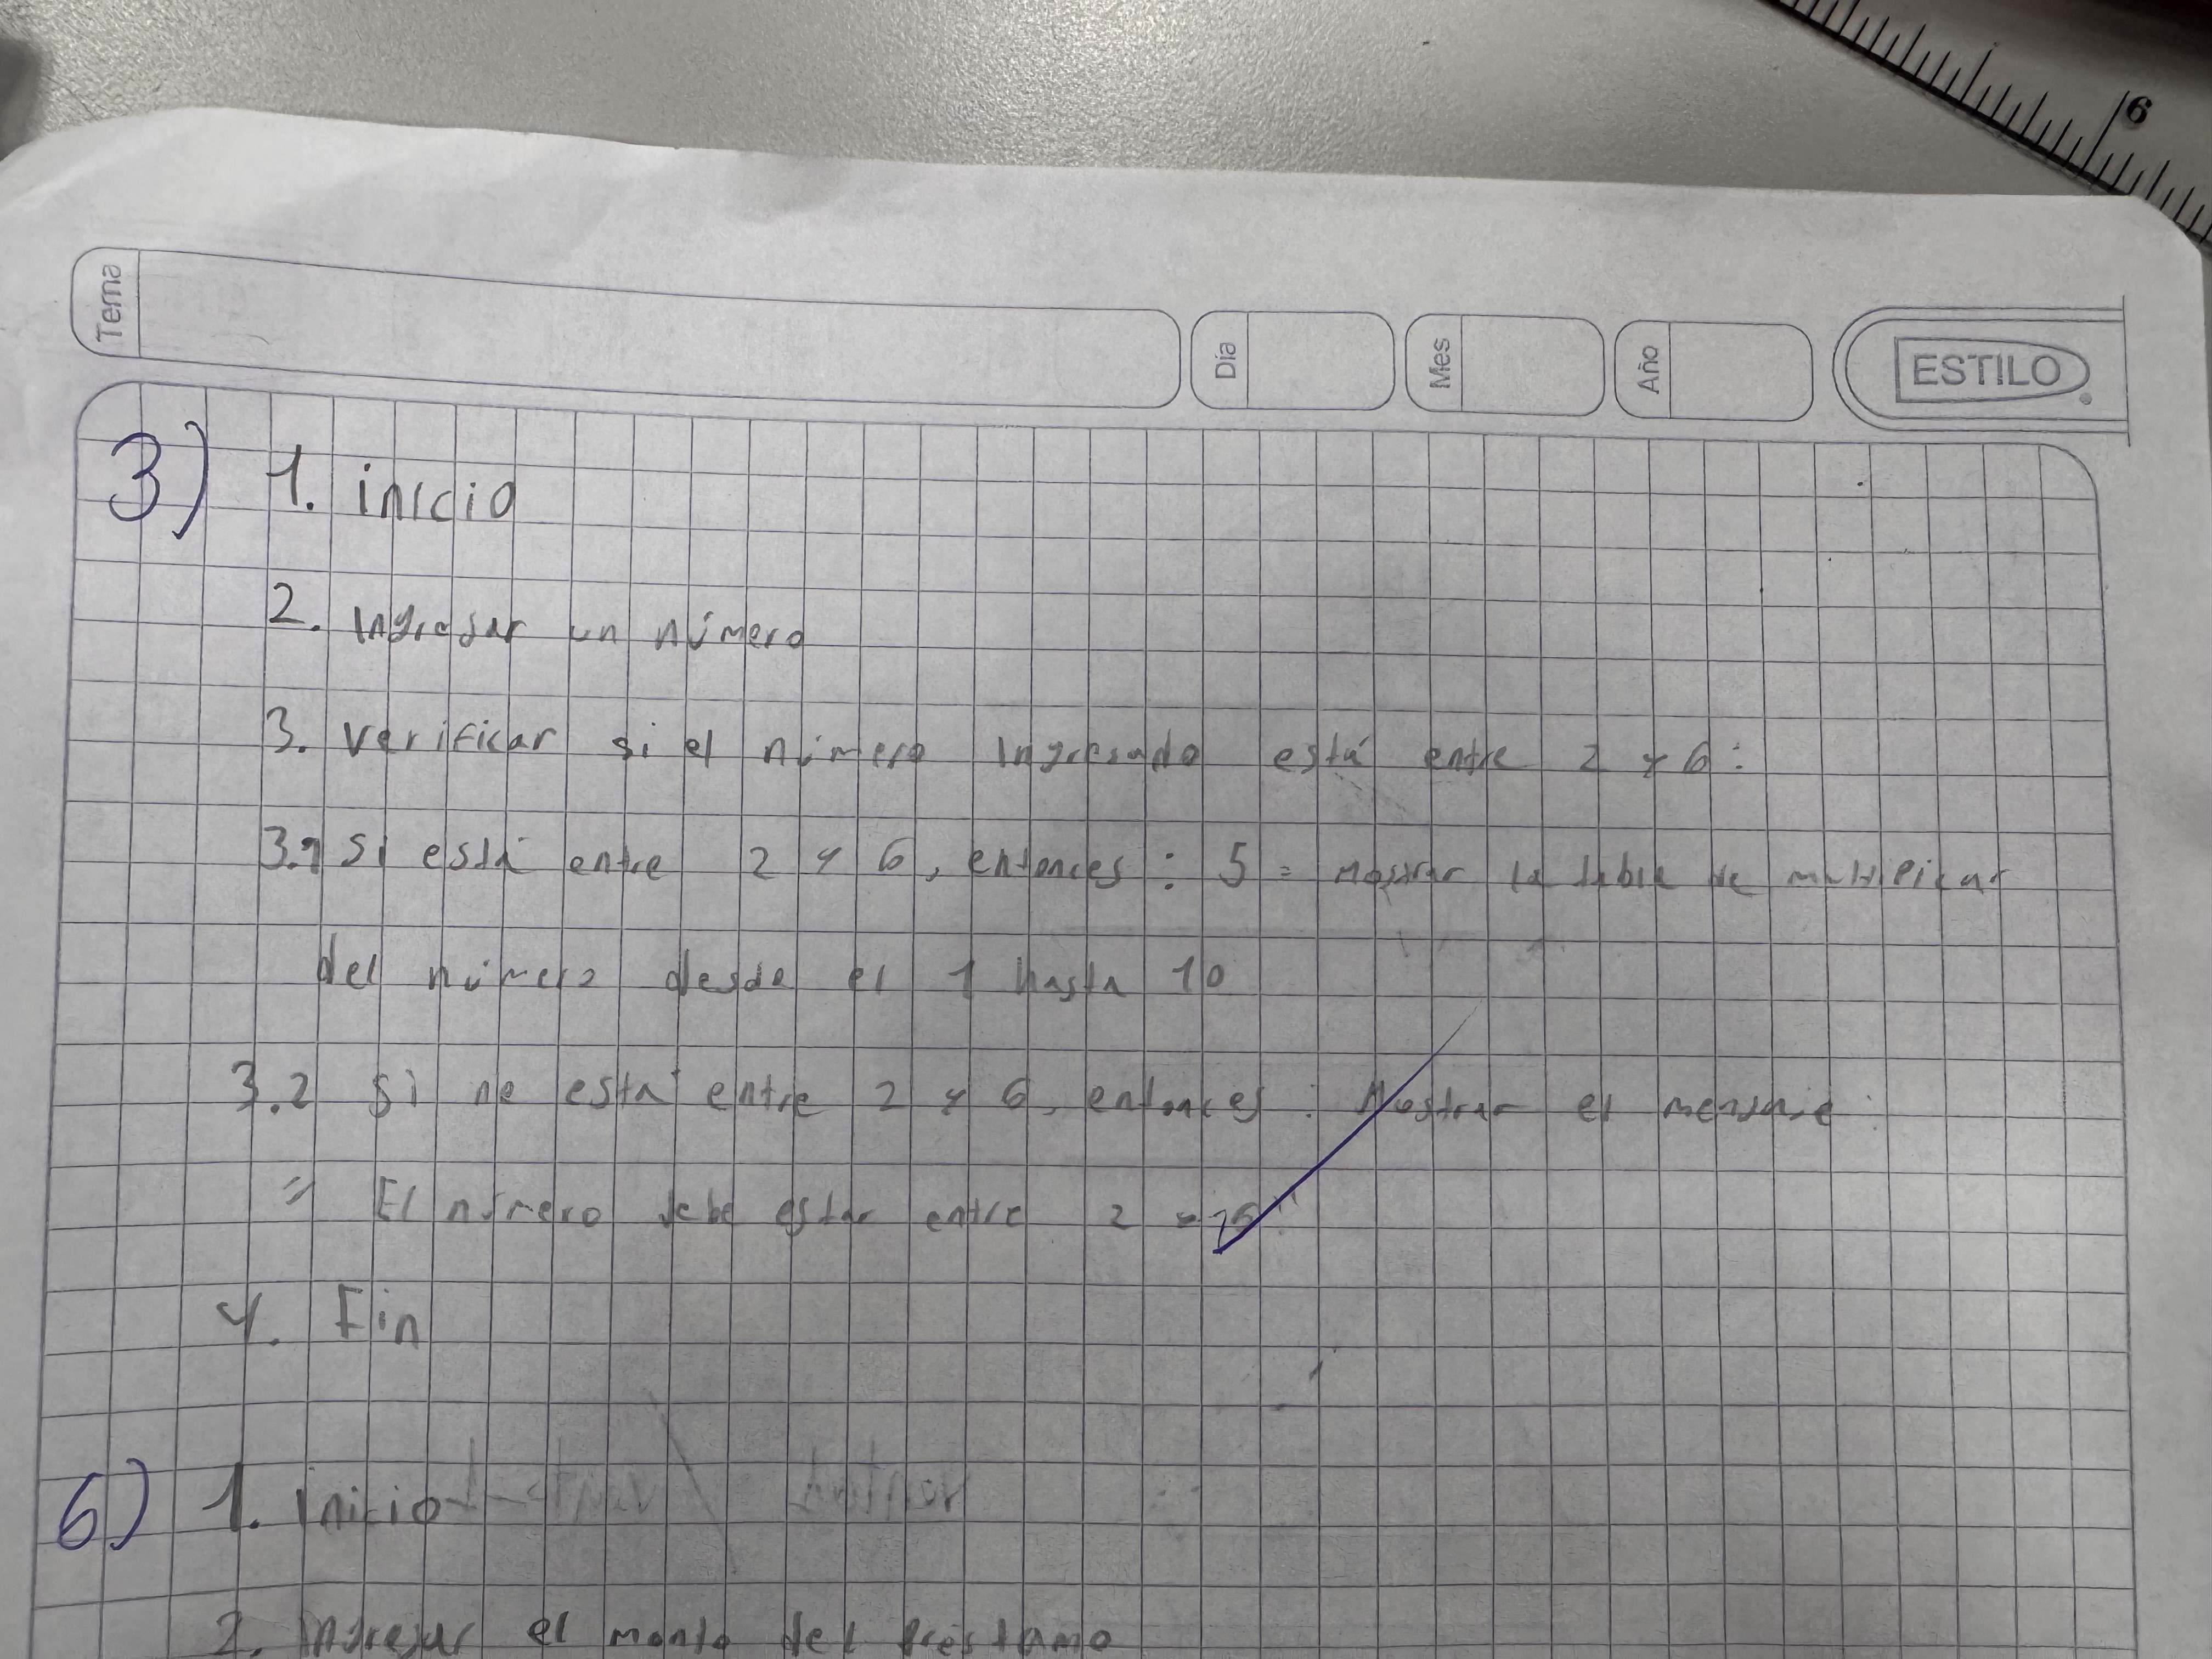 6
Tema
Día
Mes
Año
ESTILO
3) 1. inicio
2. Ingresar un número
3. verificar si el número ingresado está entre 2 y 6:
3.1 Si está entre 2 y 6, entonces: 5 = Mostrar la tabla de multiplicar
del número desde el 1 hasta 10
3.2 Si no está entre 2 y 6, entonces: Mostrar el mensaje:
" El número debe estar entre 2 y
4. Fin
6) 1. inicio
2. Ingresar el monto del Préstamo